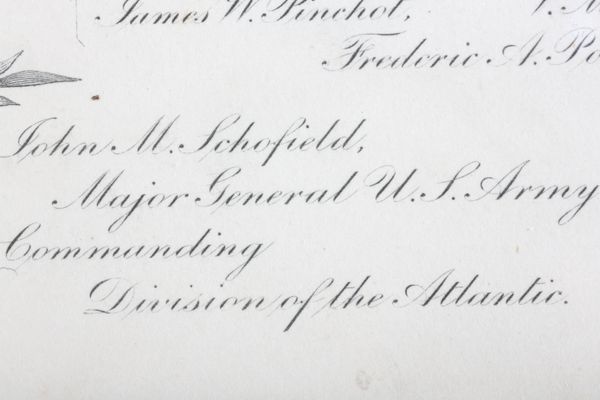 James W. Pinchot,
Frederic A.
John M. Schofield,
Major General U.S. Army
Commanding
Division of the Atlantic.